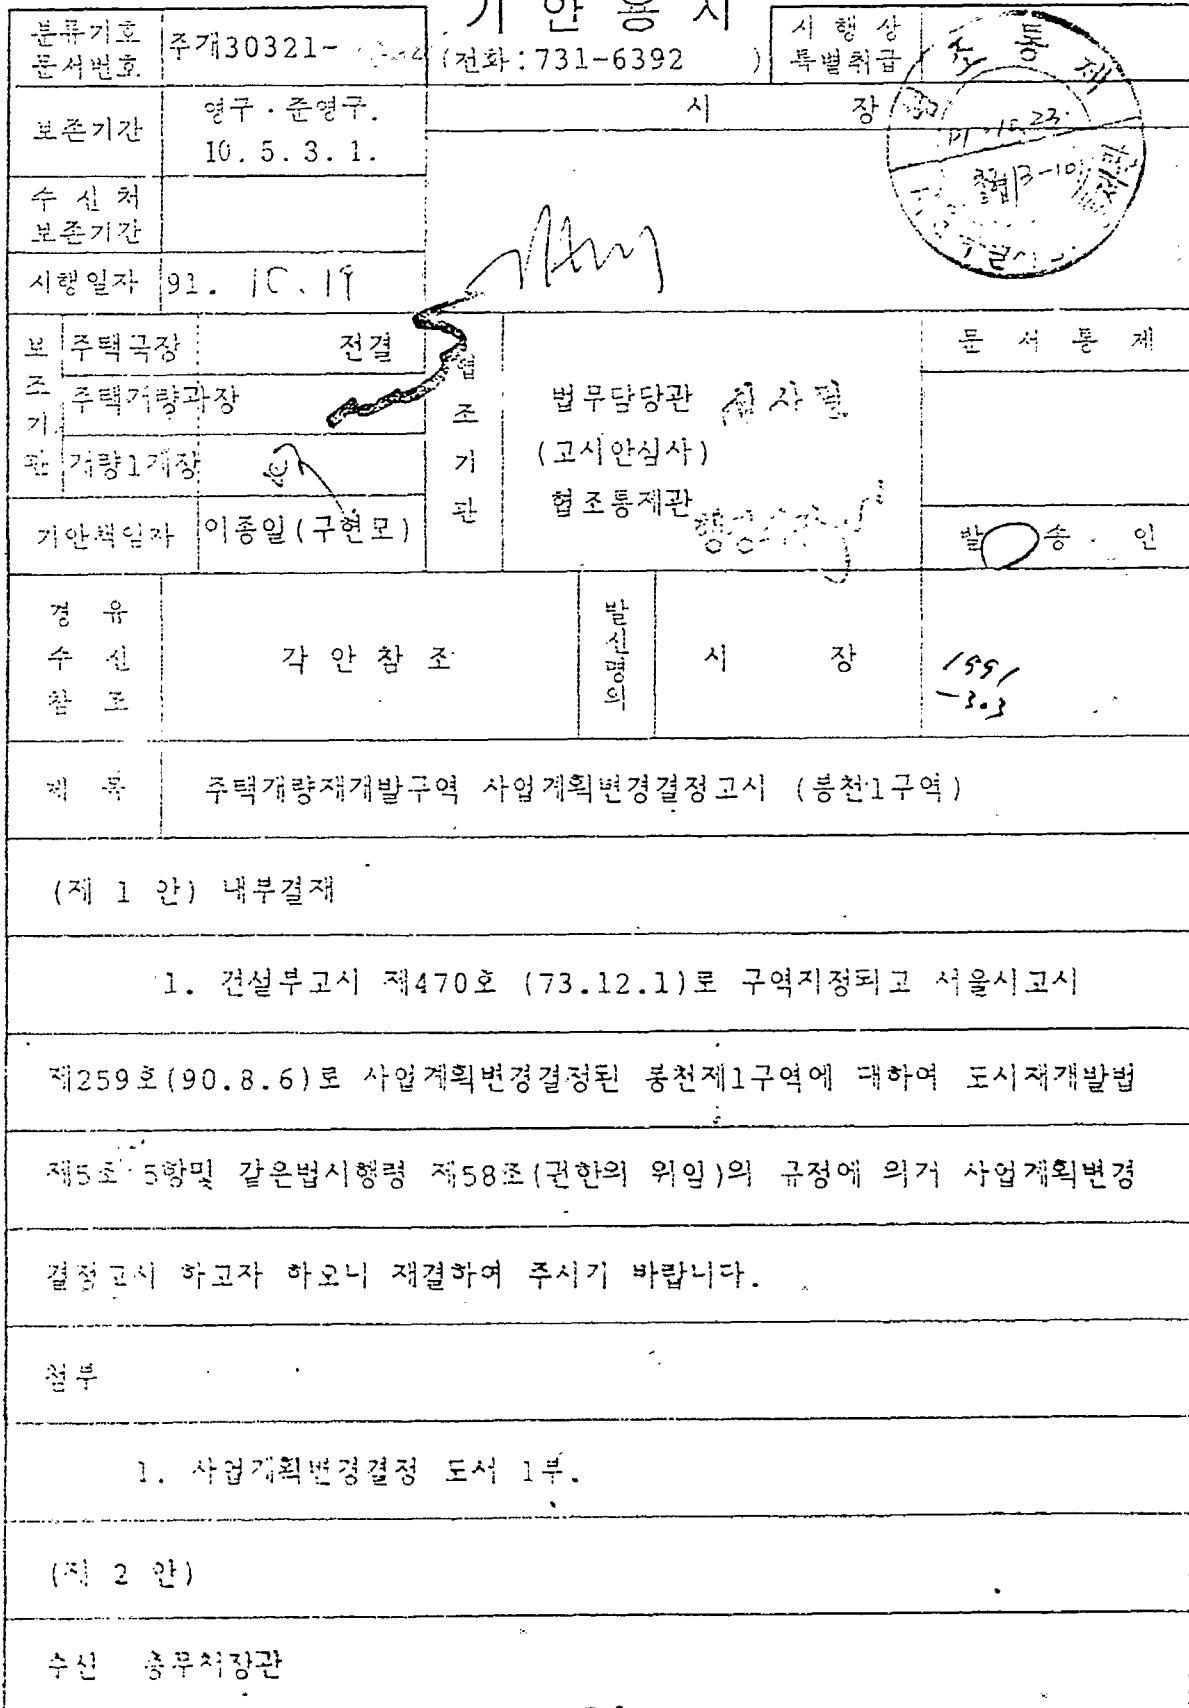 기 안 용 지
분류기호
문서번호
주개30321-
(전화:731-6392 )
시 행 상
특별취급
보존기간
영구·준영구.
10. 5. 3. 1.
시 장
수 신 처
보존기간
시행일자
91. 10. 19
보조기관
주택국장 전결
주택개량과장
개량1계장
기안책임자
이종일(구현모)
협조기관
법무담당관
(고시안심사)
협조통제관
문 서 통 제
발 송 인
경 유
수 신
참 조
각 안 참 조
발신명의
시 장
1991
제 목
주택개량재개발구역 사업계획변경결정고시 (봉천1구역)
(제 1 안) 내부결재
1. 건설부고시 제470호 (73.12.1)로 구역지정되고 서울시고시
제259호(90.8.6)로 사업계획변경결정된 봉천제1구역에 대하여 도시재개발법
제5조 5항및 같은법시행령 제58조(권한의 위임)의 규정에 의거 사업계획변경
결정고시 하고자 하오니 재결하여 주시기 바랍니다.
첨부
1. 사업계획변경결정 도서 1부.
(제 2 안)
수신 총무처장관